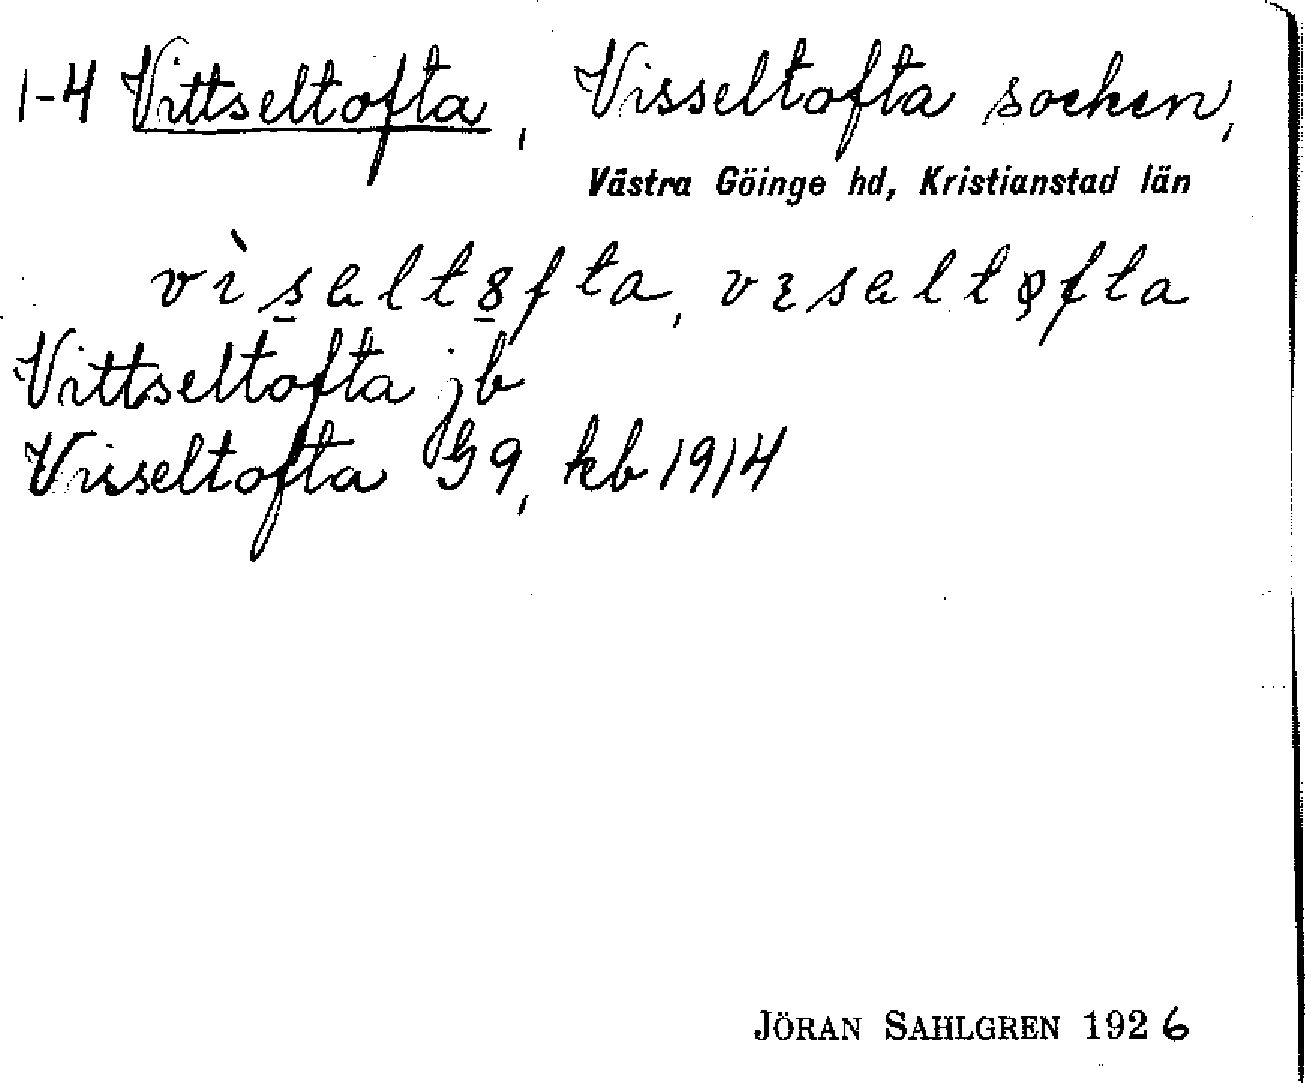 1-4 Vittseltofta, Visseltofta socken,
Västra Göinge hd, Kristianstad län
vìsəltofta, vɪsəltɵfta
Vittseltofta jb
Visseltofta G9, kb 1914
JÖRAN SAHLGREN 1926